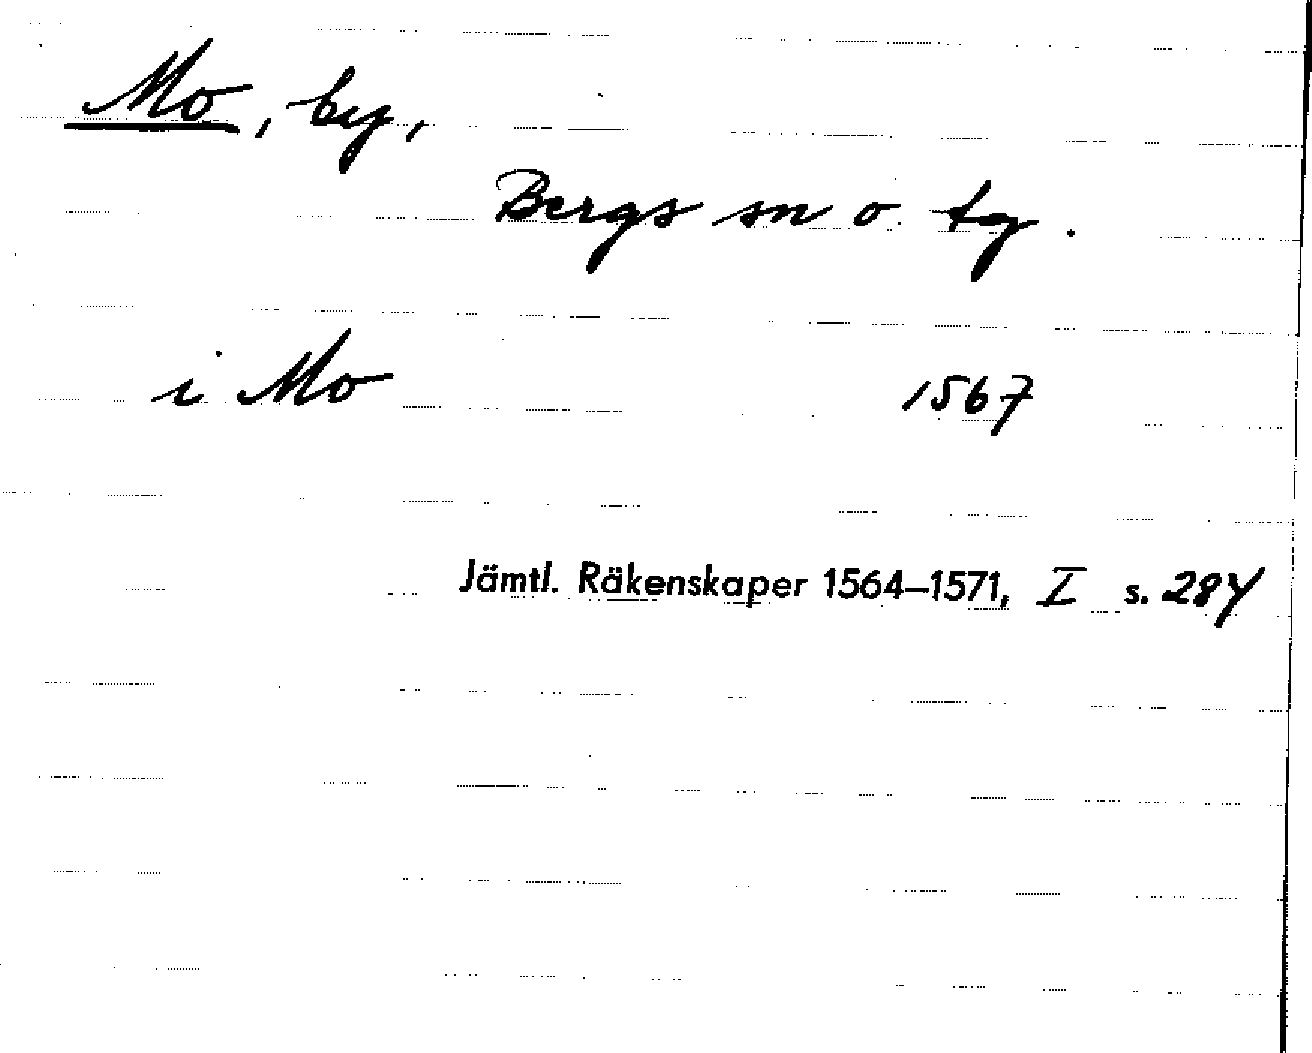 Mo, by,
Bergs sn o. tg.
i Mo 1567
Jämtl. Räkenskaper 1564–1571, I s. 284